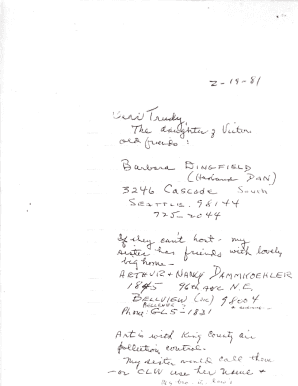 2-19-81
Dear Trudy,
The daughter of Victor
old friends:
Barbara DINGFIELD
(Husband DAN)
3246 Cascade South
SEATTLE. 98144
725-2044
If they can't host - my
sister has friends with lovely
big home -
ARTHUR & NANCY DAMMKOEHLER
1845 96th AVE N.E.
BELLVIEW (WA) 98004
Phone: GL5-1821
Art is with King County air
pollution control.
My sister would call them
- or CLW use her name &